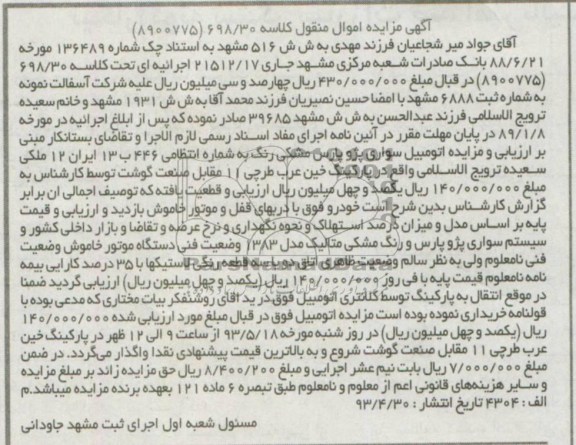 آگهی مزایده اموال منقول کلاسه ۶۹۸/۳۰ (۸۹۰۰۷۷۵)
آقای جواد میر شجاعیان فرزند مهدی به ش ش ۵۱۶ مشهد به استناد چک شماره ۱۳۶۴۸۹ مورخه
۸۸/۶/۲۱ بانک صادرات شعبه مرکزی مشهد جاری ۲۱۵۱۲/۱۷ اجرائیه ای تحت کلاسه ۶۹۸/۳۰
(۸۹۰۰۷۷۵) در قبال مبلغ ۴۳۰/۰۰۰/۰۰۰ ریال چهارصد و سی میلیون ریال علیه شرکت آسفالت نمونه
به شماره ثبت ۶۸۸۸ مشهد با امضا حسین نصیریان فرزند محمد آقا به ش ش ۱۹۳۱ مشهد و خانم سعیده
ترویج الاسلامی فرزند عبدالحسن به ش ش مشهد ۳۹۶۸۵ صادر نموده که پس از ابلاغ اجرائیه در مورخه
۸۹/۱/۸ در پایان مهلت مقرر در آئین نامه اجرای مفاد اسناد رسمی لازم الاجرا و تقاضای بستانکار مبنی
بر ارزیابی و مزایده اتومبیل سواری پژو پارس مشکی رنگ به شماره انتظامی ۴۴۶ ب ۱۳ ایران ۱۲ ملکی
سعیده ترویج الاسلامی واقع در پارکینگ خین عرب طرحی ۱۱ مقابل صنعت گوشت توسط کارشناس به
مبلغ ۱۴۰/۰۰۰/۰۰۰ ریال یکصد و چهل میلیون ریال ارزیابی و قطعیت یافته که توصیف اجمالی ان برابر
گزارش کارشناس بدین شرح است خودرو فوق با دربهای قفل و موتور خاموش بازدید و ارزیابی و قیمت
پایه بر اساس مدل و میزان درصد استهلاک و نحوه نگهداری و نرخ عرضه و تقاضا و بازار داخلی کشور و
سیستم سواری پژو پارس و رنگ مشکی متالیک مدل ۱۳۸۳ وضعیت فنی دستگاه موتور خاموش وضعیت
فنی نامعلوم ولی به نظر سالم وضعیت ظاهری اتاق دو یا سه قطعه رنگ لاستیکها با ۳۵ درصد کارایی بیمه
نامه نامعلوم قیمت پایه با فی روز ۱۴۰/۰۰۰/۰۰۰ ریال (یکصد و چهل میلیون ریال) ارزیابی گردید ضمنا
در موقع انتقال به پارکینگ توسط کلانتری اتومبیل فوق در ید آقای روشنفکر بیات مختاری که مدعی بوده با
قولنامه خریداری نموده بوده است مزایده اتومبیل فوق در قبال مبلغ مورد ارزیابی شده ۱۴۰/۰۰۰/۰۰۰
ریال (یکصد و چهل میلیون ریال) در روز شنبه مورخه ۹۳/۵/۱۸ از ساعت ۹ الی ۱۲ ظهر در پارکینگ خین
عرب طرحی ۱۱ مقابل صنعت گوشت شروع و به بالاترین قیمت پیشنهادی نقدا واگذار می‌گردد. در ضمن
مبلغ ۷/۰۰۰/۰۰۰ ریال بابت نیم عشر اجرایی و مبلغ ۸/۴۰۰/۲۰۰ ریال حق مزایده زائد بر مبلغ مزایده
و سایر هزینه‌های قانونی اعم از معلوم و نامعلوم طبق تبصره ۶ ماده ۱۲۱ بعهده برنده مزایده میباشد.م
الف : ۴۳۰۴ تاریخ انتشار : ۹۳/۴/۳۰
مسئول شعبه اول اجرای ثبت مشهد جاودانی